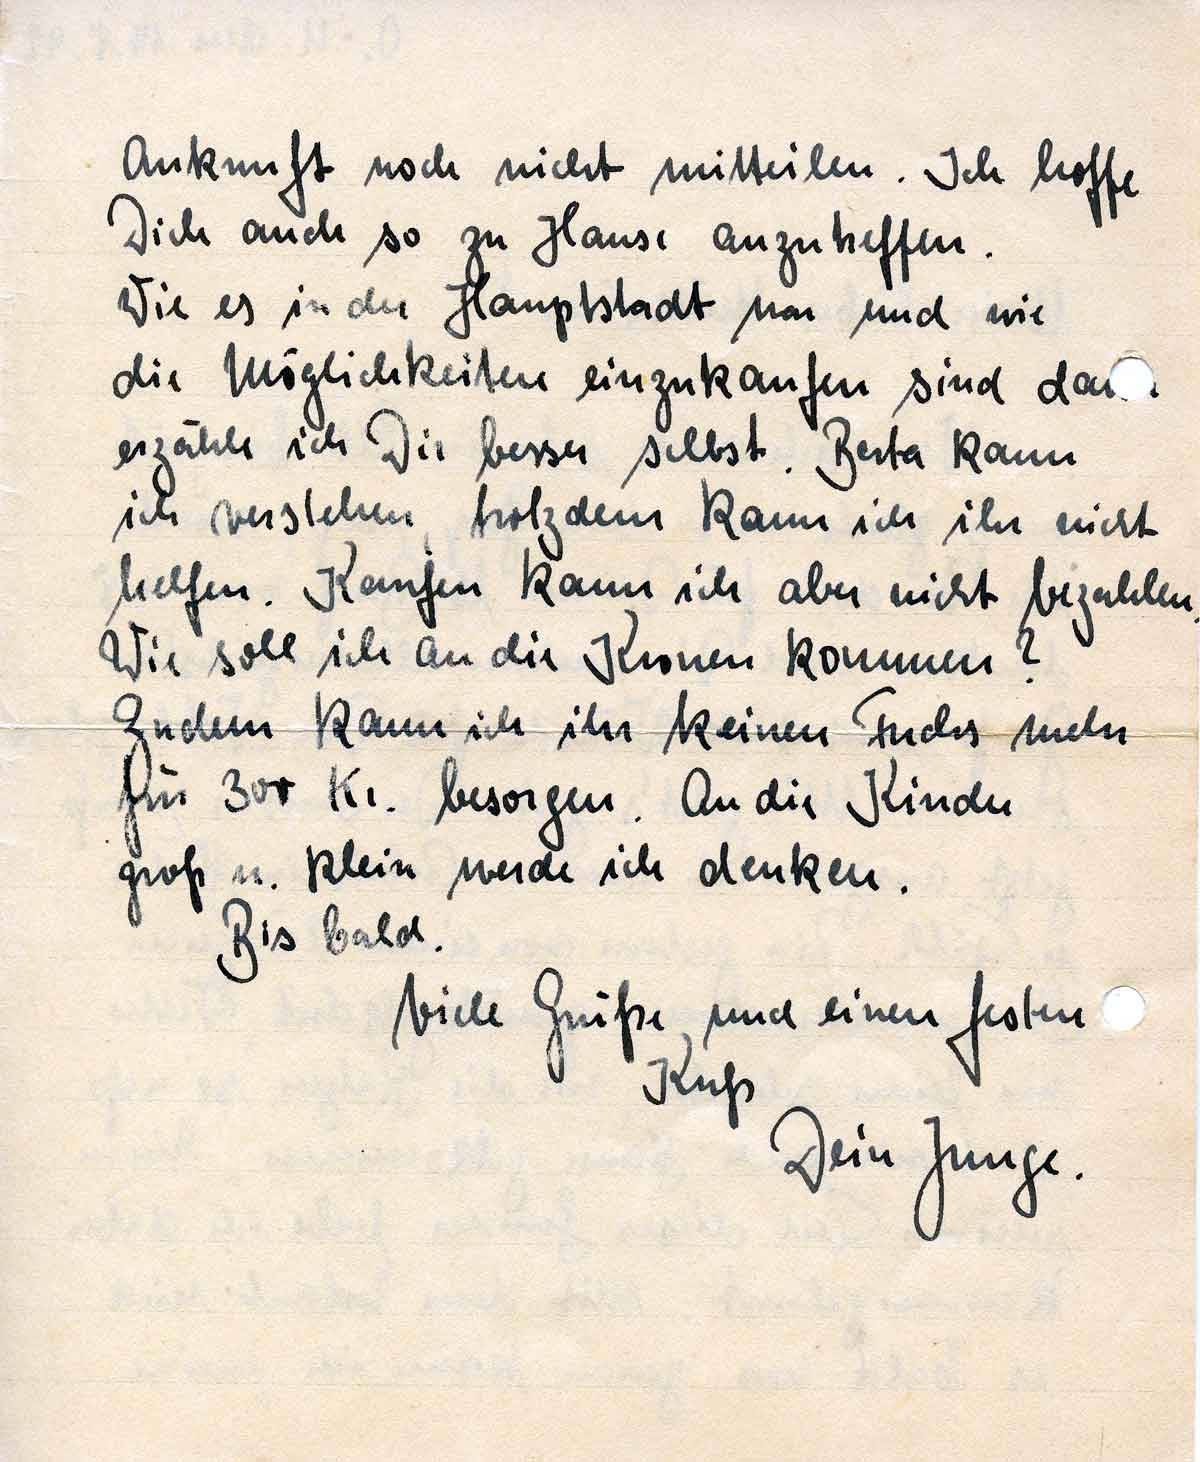 Ankunft noch nicht mitteilen. Ich hoffe
Dich auch so zu Hause anzutreffen.
Wie es in der Hauptstadt war und wie
die Möglichkeiten einzukaufen sind dann
erzähle ich Dir besser selbst. Berta kann
ich verstehen, trotzdem kann ich ihr nicht
helfen. Kaufen kann ich aber nicht bezahlen.
Wie soll ich an die Kronen kommen?
Zudem kann ich ihr keinen Fuchs mehr
für 300 Kr. besorgen. An die Kinder
groß u. klein werde ich denken.
Bis bald.
Viele Grüße und einen festen
Kuß
Dein Junge.